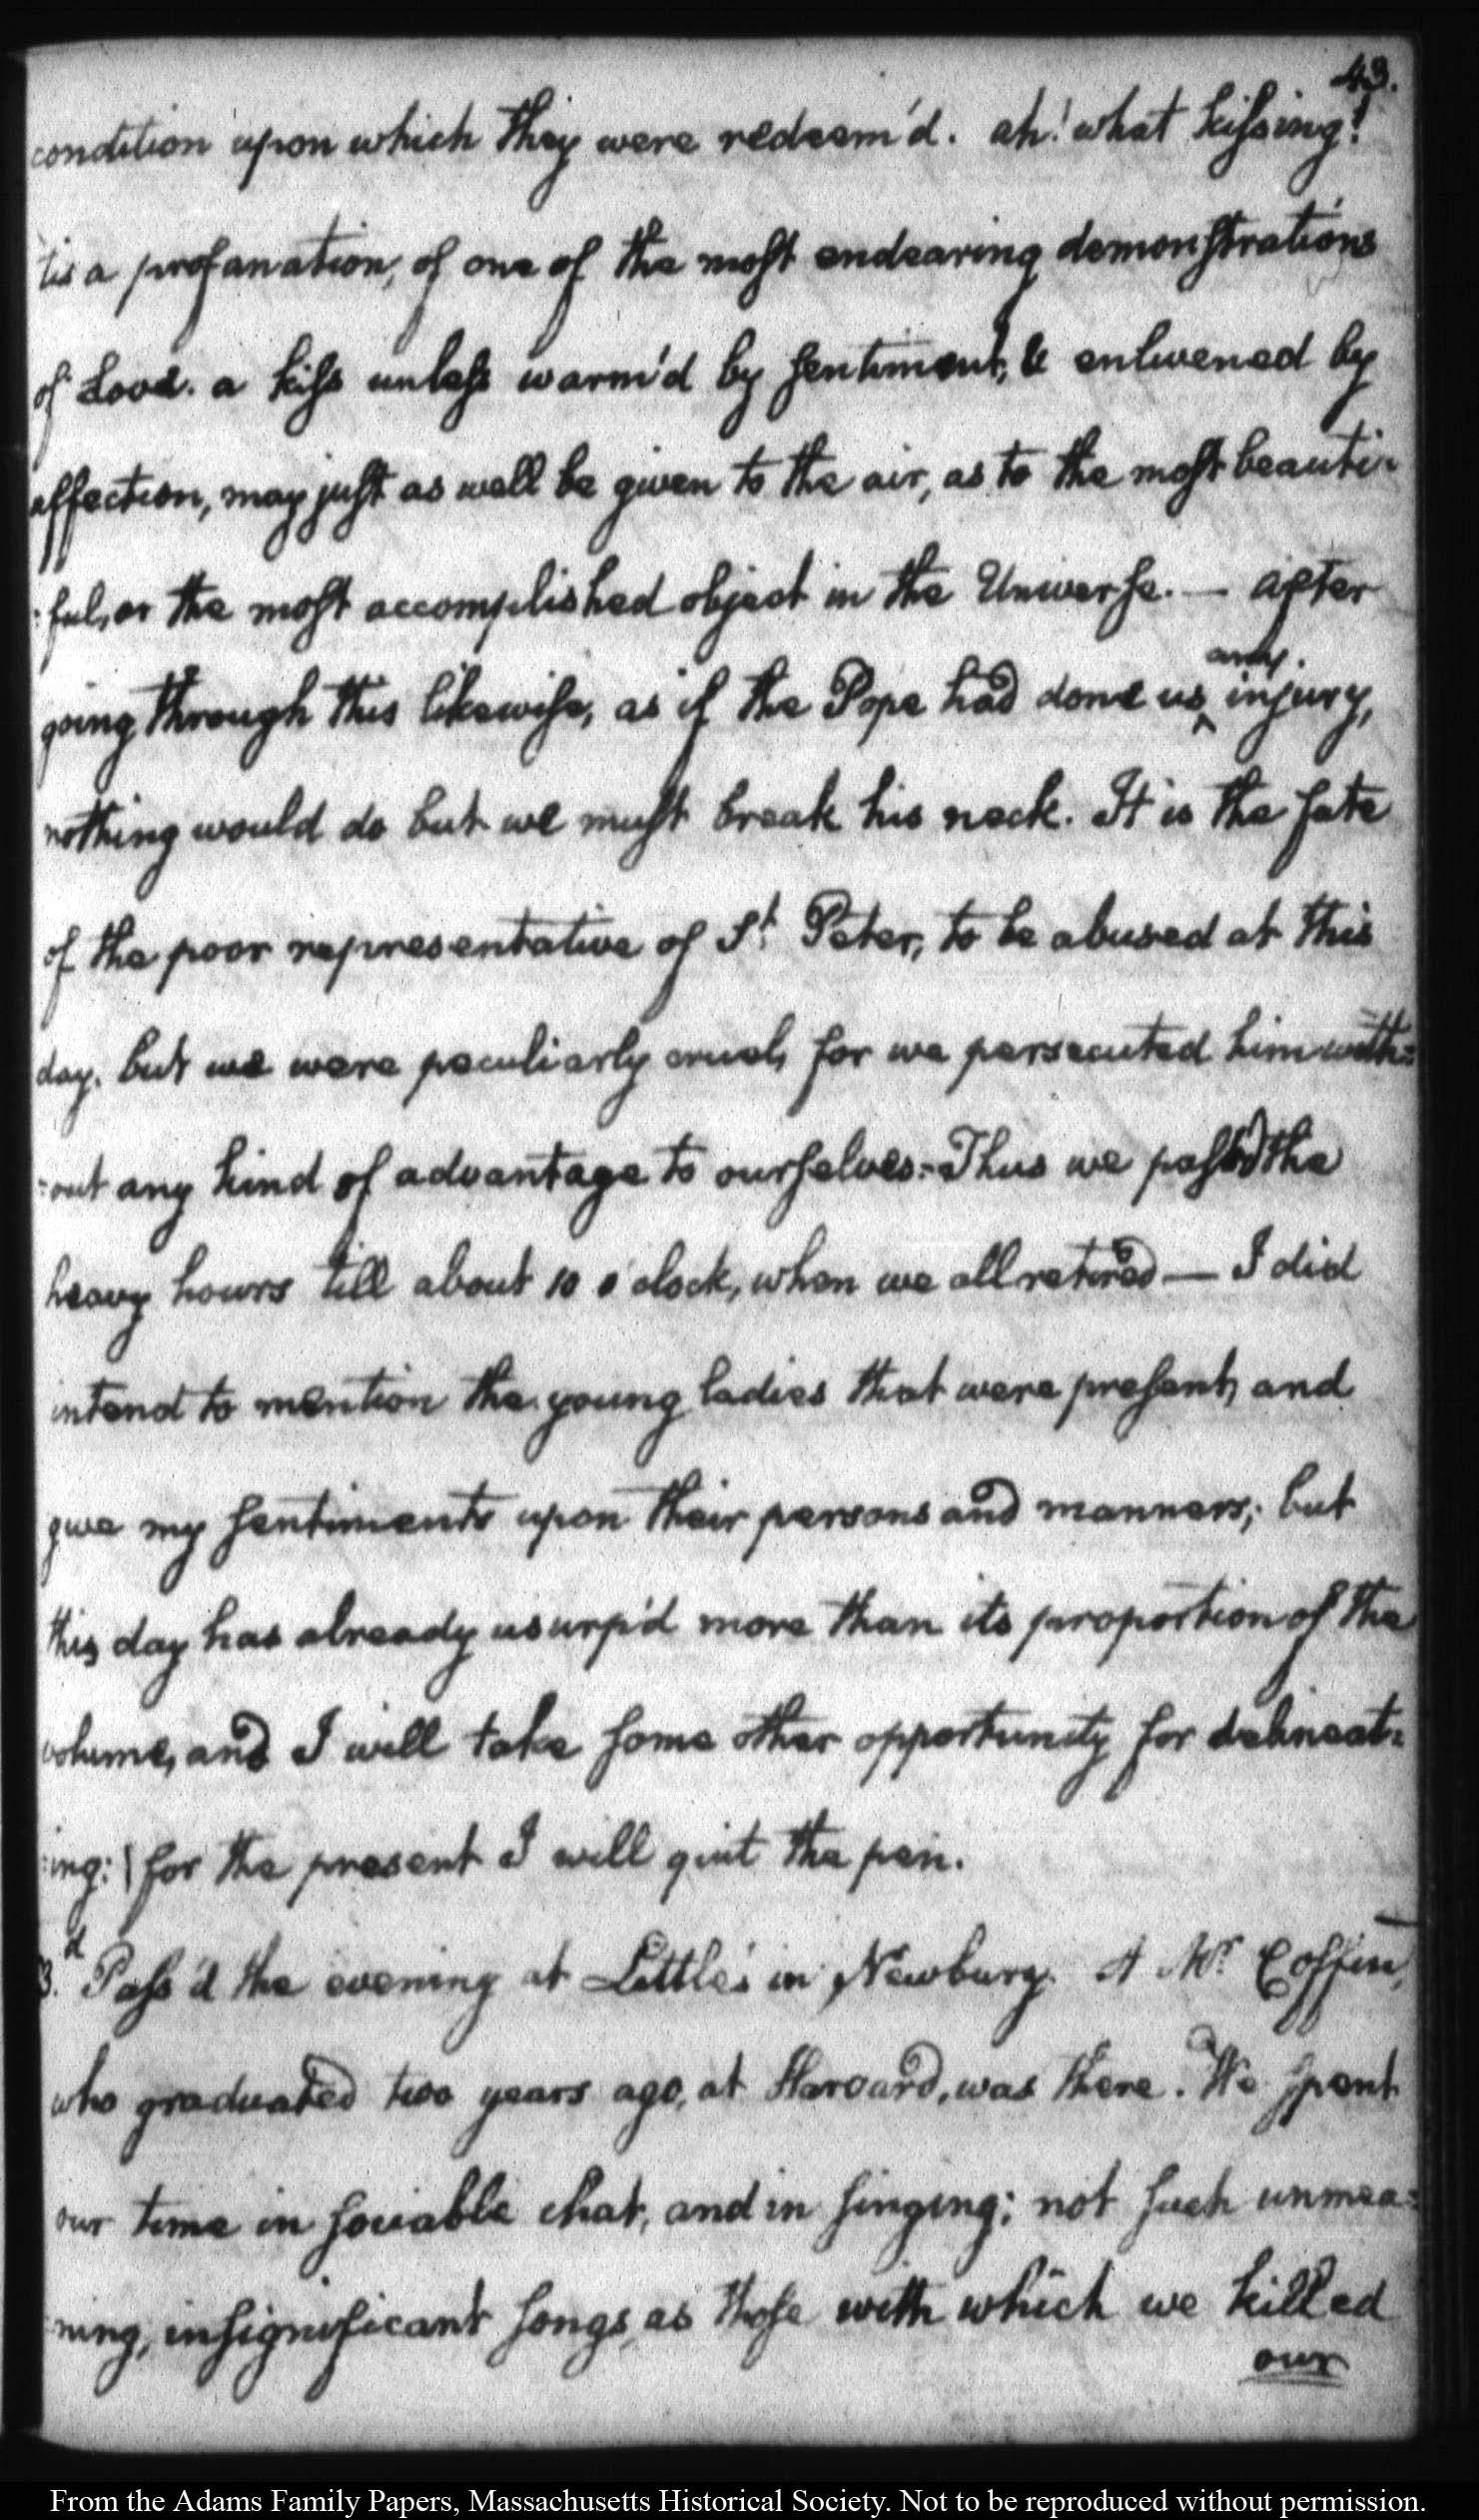 43.
condition upon which they were redeem'd. ah! what kissing!
'tis a profanation, of one of the most endearing demonstrations
of Love. a kiss unless warm'd by sentiment, & enlivened by
affection, may just as well be given to the air, as to the most beauti-
:ful, or the most accomplished object in the Universe. — after
going through this likewise, as if the Pope had done us any injury,
nothing would do but we must break his neck. It is the fate
of the poor representative of St. Peter, to be abused at this
day. but we were peculiarly cruel, for we persecuted him with=
:out any kind of advantage to ourselves. Thus we pass'd the
heavy hours till about 10 o'clock, when we all retired — I did
intend to mention the young ladies that were present, and
give my sentiments upon their persons and manners; but
this day has already usurp'd more than its proportion of the
volume, and I will take some other opportunity for delineat=
:ing: for the present I will quit the pen.
3.d Pass'd the evening at Little's in Newbury. A Mr. Coffin,
who graduated two years ago, at Harvard, was there. We spent
our time in sociable chat, and in singing; not such unmea=
ning, insignificant songs, as those with which we killed
our
From the Adams Family Papers, Massachusetts Historical Society. Not to be reproduced without permission.